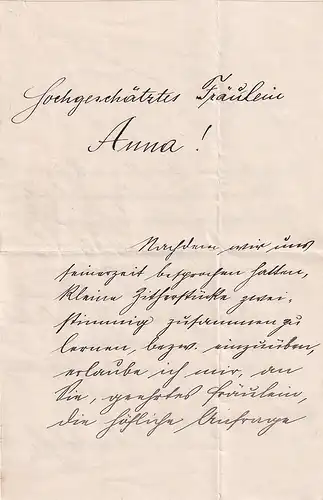 Hochgeschätztes Fräulein
Anna!
Nachdem wir uns
seinerzeit besprochen hatten,
kleine Zitherstücke zwei-
stimmig zusammen zu
lernen, bezw. einzuüben,
erlaube ich mir, an
Sie, geehrtes Fräulein,
die höfliche Anfrage